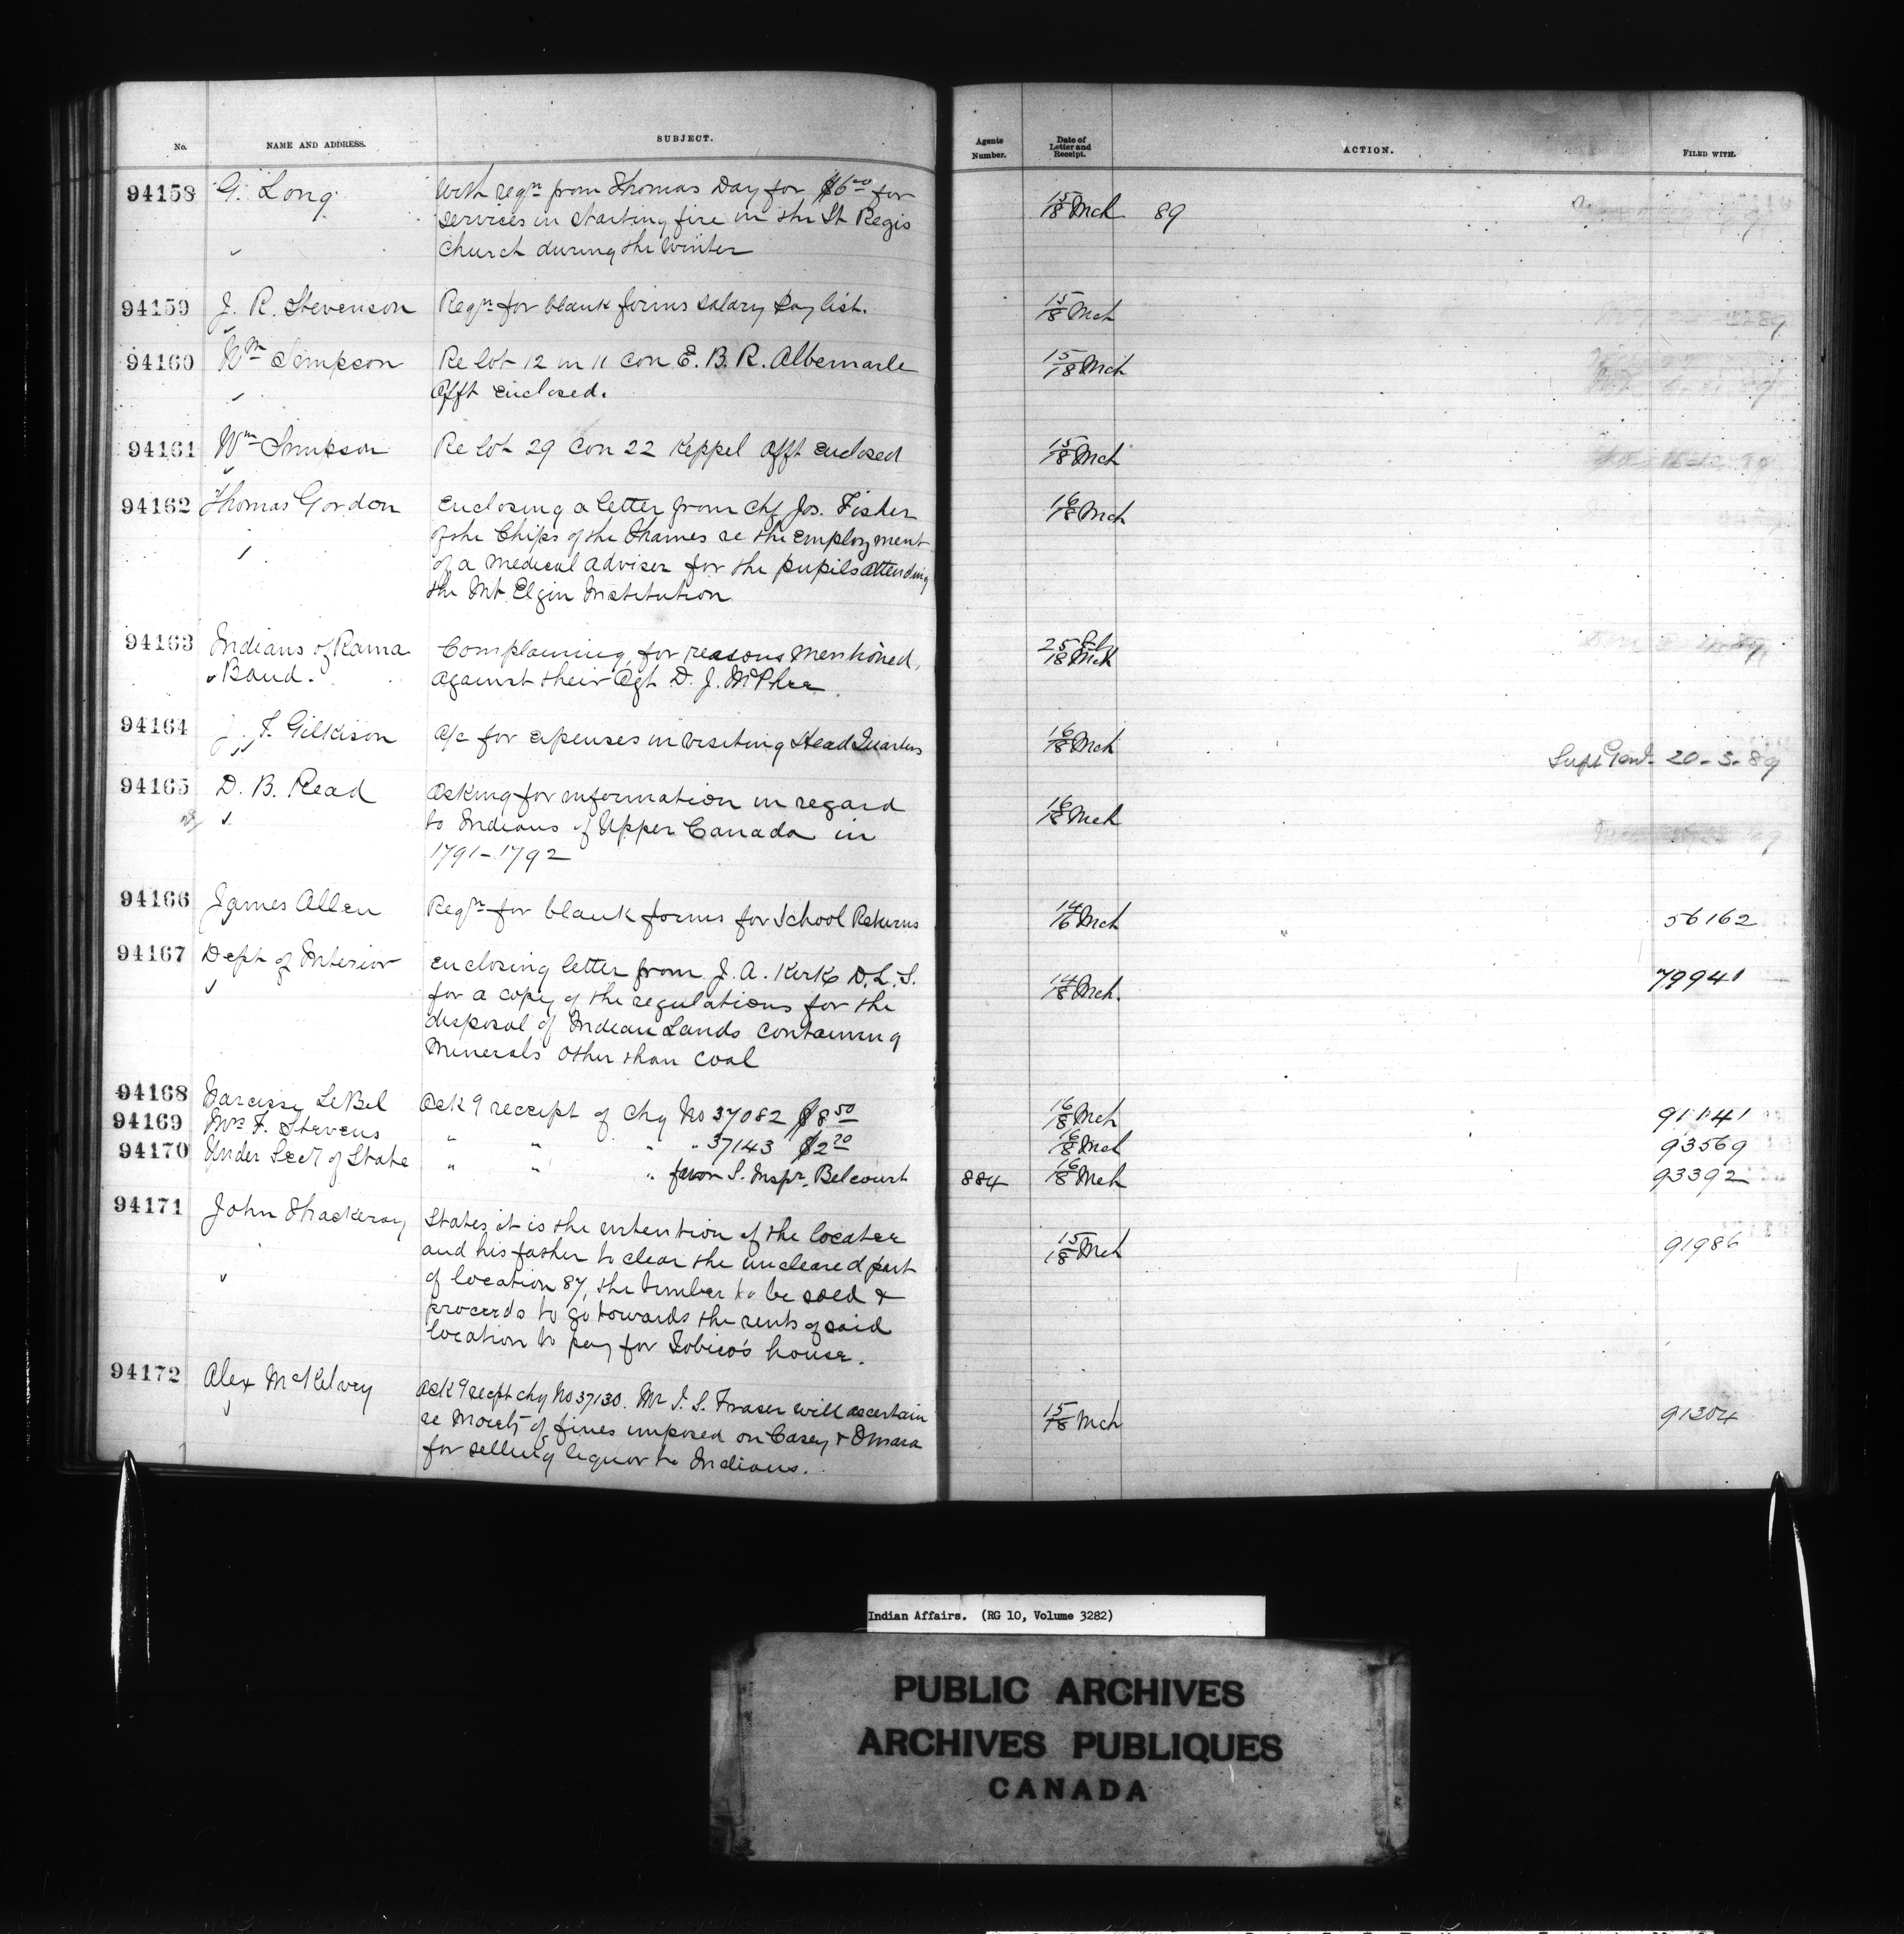 No. NAME AND ADDRESS. SUBJECT. Agents Number. Date of Letter and Receipt. ACTION. FILED WITH.
94158 G. Long With reqn from Thomas Day for $6.00 for 15/18 Mch 89
services in starting fire in the St Regis
Church during the Winter
94159 J. R. Stevenson Reqn for blank forms salary pay list. 15/18 Mch
94160 Wm Simpson Re lot 12 in 11 Con E. B. R. Albemarle 15/18 Mch
Afft enclosed.
94161 Wm Simpson Re lot 29 Con 22 Keppel Afft Enclosed 15/18 Mch
94162 Thomas Gordon Enclosing a letter from Chf Jos. Fisher 16/18 Mch
of the Chips of the Thames re the employment
of a medical adviser for the pupils attending
the Mt Elgin Institution
94163 Indians of Rama Complaining, for reasons mentioned, 25 Feb/18 Mch
Band. against their Agt D. J. McPhee
94164 J. F. Gilkison A/c for expenses in visiting Head Quarters 16/18 Mch
Supt Genl 20-3-89
94165 D. B. Read Asking for information in regard 16/18 Mch
to Indians of Upper Canada in
1791-1792
94166 James Allen Reqn for blank forms for School Returns 14/16 Mch 56162
94167 Dept of Interior Enclosing letter from J. A. Kirk D.L.S. 14/18 Mch. 79941
for a copy of the regulations for the
disposal of Indian Lands containing
Minerals other than coal
94168 Narcisse LeBel Ack9 receipt of Chq No 37082 $8.50 16/18 Mch 91141
94169 Mrs F. Stevens " " " " 37143 $2.20 16/18 Mch 93569
94170 Under Secy of State " " " favor S. Inspr. Belcourt 884 16/18 Mch 93392
94171 John Thackeray States it is the intention of the locatee 15/18 Mch 91986
and his father to clear the uncleared part
of location 87, the timber to be sold &
proceeds to go towards the rents of said
location to pay for Tobico's house.
94172 Alex McKelvey Ack9 recpt chq No 37130. Mr I. S. Fraser will ascertain 15/18 Mch 91304
re Moiety of fines imposed on Casey & Omara
for selling liquor to Indians.
Indian Affairs. (RG 10, Volume 3282)
PUBLIC ARCHIVES
ARCHIVES PUBLIQUES
CANADA